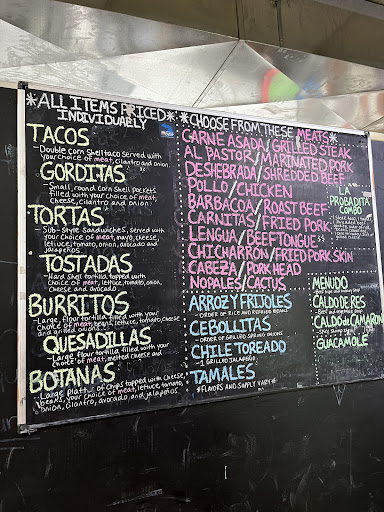 *ALL ITEMS PRICED*
INDIVIDUALLY
TACOS
- Double corn shell taco served with
your choice of meat, cilantro and onion
GORDITAS
- Small, round corn shell pockets
filled with your choice of meat,
cheese, cilantro and onion
TORTAS
- Sub-style sandwiches, served with
your choice of meat, mayo, cheese,
lettuce, tomato, onion, avocado and
jalapeños
TOSTADAS
- Hard shell tortilla topped with
choice of meat, lettuce, tomato, onion,
cheese and avocado
BURRITOS
- Large, flour tortilla filled with your
choice of meat, beans, lettuce, tomato, cheese
and onion
QUESADILLAS
- Large flour tortilla filled with your
choice of meat, melted cheese and
BOTANAS
- Large platter of chips topped with cheese,
beans, your choice of meat, lettuce, tomato,
onion, cilantro, avocado, and jalapeños
*CHOOSE FROM THESE MEATS*
CARNE ASADA/GRILLED STEAK
AL PASTOR/MARINATED PORK
DESHEBRADA/SHREDDED BEEF
POLLO/CHICKEN
BARBACOA/ROAST BEEF
CARNITAS/FRIED PORK
LENGUA/BEEF TONGUE
CHICHARRÓN/FRIED PORK SKIN
CABEZA/PORK HEAD
NOPALES/CACTUS
ARROZ Y FRIJOLES
- ORDER OF RICE AND REFRIED BEANS
CEBOLLITAS
- ORDER OF GRILLED SPRING ONIONS
CHILE TOREADO
- 1 GRILLED JALAPEÑO
TAMALES
*FLAVORS AND SUPPLY VARY*
LA
PROBADITA
COMBO
MENUDO
CALDO DE RES
CALDO de CAMARON
GUACAMOLE